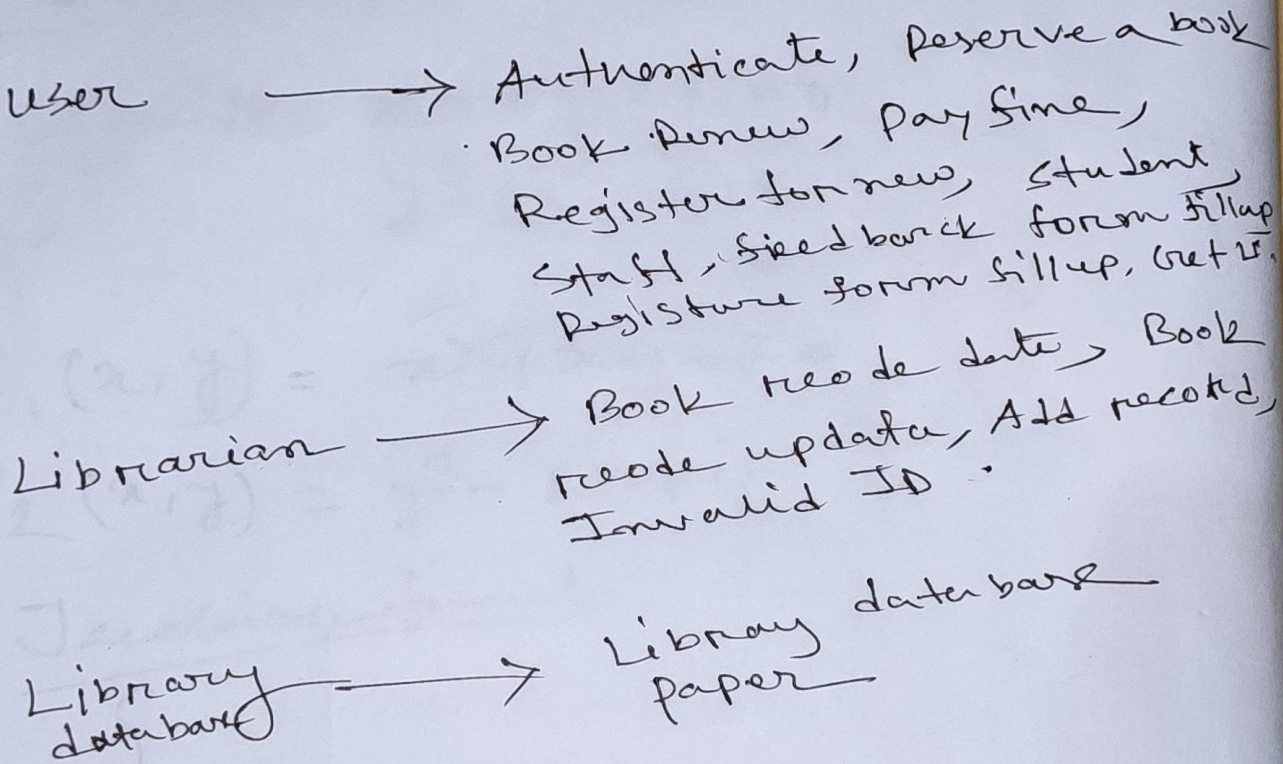 user → Authenticate, Reserve a book
Book Renew, pay fine,
Register for new, student,
staff, feedback form fillup
Registure form fillup, Get
Librarian → Book reode date, Book
reode updata, Add record,
Invalid ID.
Library → Libray database
database paper